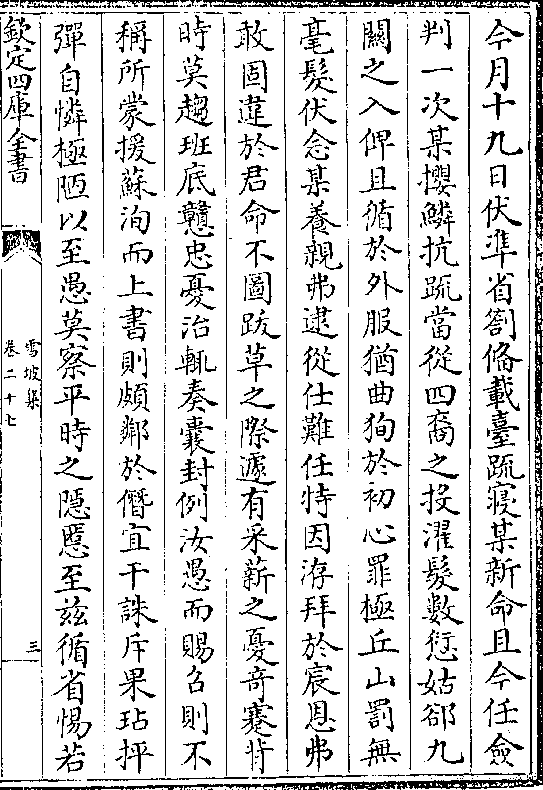 今月十九日伏準省劄備載臺疏寢某新命且令任僉
判一次某攖鱗抗疏當從四裔之投濯髮數愆姑郤九
關之入俾且循於外服猶曲狥於初心罪極丘山罰無
毫髮伏念某養親弗逮從仕難任特因洊拜於宸恩弗
敢固違於君命不圖跋草之際遽有采薪之憂奇蹇背
時莫趨班底戇忠憂治輒奏囊封例汝愚而賜召則不
稱所蒙援蘇洵而上書則頗鄰於僭宜干誅斥果玷抨
彈自憐極陋以至愚莫察平時之隱慝至兹循省惕若
欽定四庫全書
雪坡集
卷二十七
三